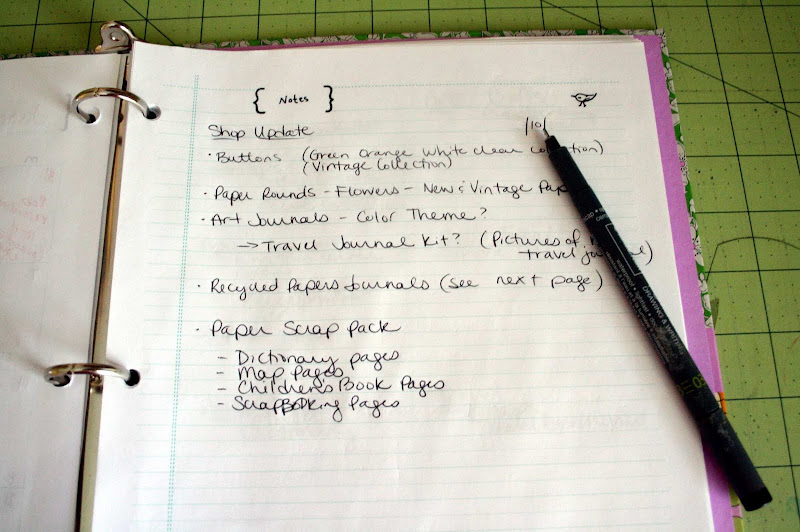 { Notes }
Shop Update
· Buttons (Green Orange White clear collection)
(Vintage Collection)
· Paper Rounds - Flowers - New & Vintage Pap
· Art Journals - Color Theme?
→ Travel Journal Kit? (Pictures of
travel journal)
· Recycled Papers Journals (see next page)
· Paper Scrap Pack
- Dictionary pages
- Map Pages
- Children's Book Pages
- Scrapbooking Pages
DRAWING & WRITING